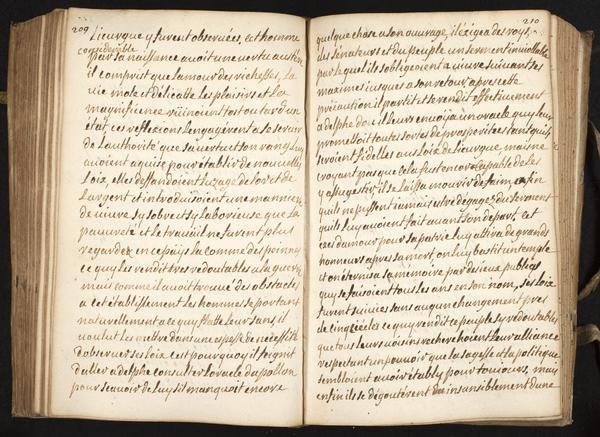 209
Licurgue y furent observées, cet homme
considerable
par sa naissance avoit une vertu austere
il comprit que lamour des richesses, La
vie mole et délicatte les plaisirs et La
magnificence rüinoient tost ou tard un
état, ces reflexions lengagerent a se servir
de Lauthorité que sa vertu et son rang luy
avoient aquise pour établir de nouvelles
Loix, elles deffandoient Lusage de lor et de
Largent et introduisoient une maniere
de vivre sy sobre et sy Laborieuse que La
pauvreté et le travail ne furent plus
regardez en ce païs la comme des peinnes
ce quy les rendit tres redoutables a la guerre
mais comme il avoit trouvé des obstacles
a cet établissement les hommes se portant
naturellement a ce quy flatte leur sens, il
voulut les mettre dans une espesse de necessité
dobserver ses Loix cet pourquoy il feignit
daller a delphe consulter Loracle dapollon
pour scavoir de luy sil manquoit encore
210
quelque chose a son ouvrage, il éxigea des roys,
des sénateurs et du peuple un serment inviollable
par lequel ils sobligeoient a vivre suivant ses
maximes jusques a son retour, apres cette
précaution il partit et se rendit effectivement
a delphe dou il leur envoÿa un oracle quy leur
promettoit toutes sortes de prosperitées tant quils
seroient fidelles aux Loix de Licurgue, mais ne
croyant pas que cela fust encor capable de les
y assugestir il se laissa mourir de faim, enfin
quils ne pussent jamais estre dégagez du serment
quils luy avoient fait avant son depart, cet
exces damour pour sa patrie luy attira de grands
honneurs apres sa mort, on luy bastit un temple
et on éternisa sa memoire par des jeux publics
quy se faisoient tous les ans en son nom, ses Loix
furent suivies sans aucun changement pres
de cinq ciecles ce quy rendit ce peuple sy redoutables
que tous leurs voisins recherchoient leur alliance
respectant un pouvoir que la sagesse et la politique
sembloient avoir étably pour toujours, mais
enfin ils se dégouterent insansiblement dune